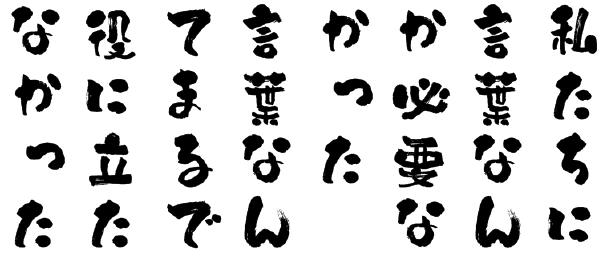 私たちに
言葉なん
か必要な
かった
言葉なん
てまるで
役に立た
なかった